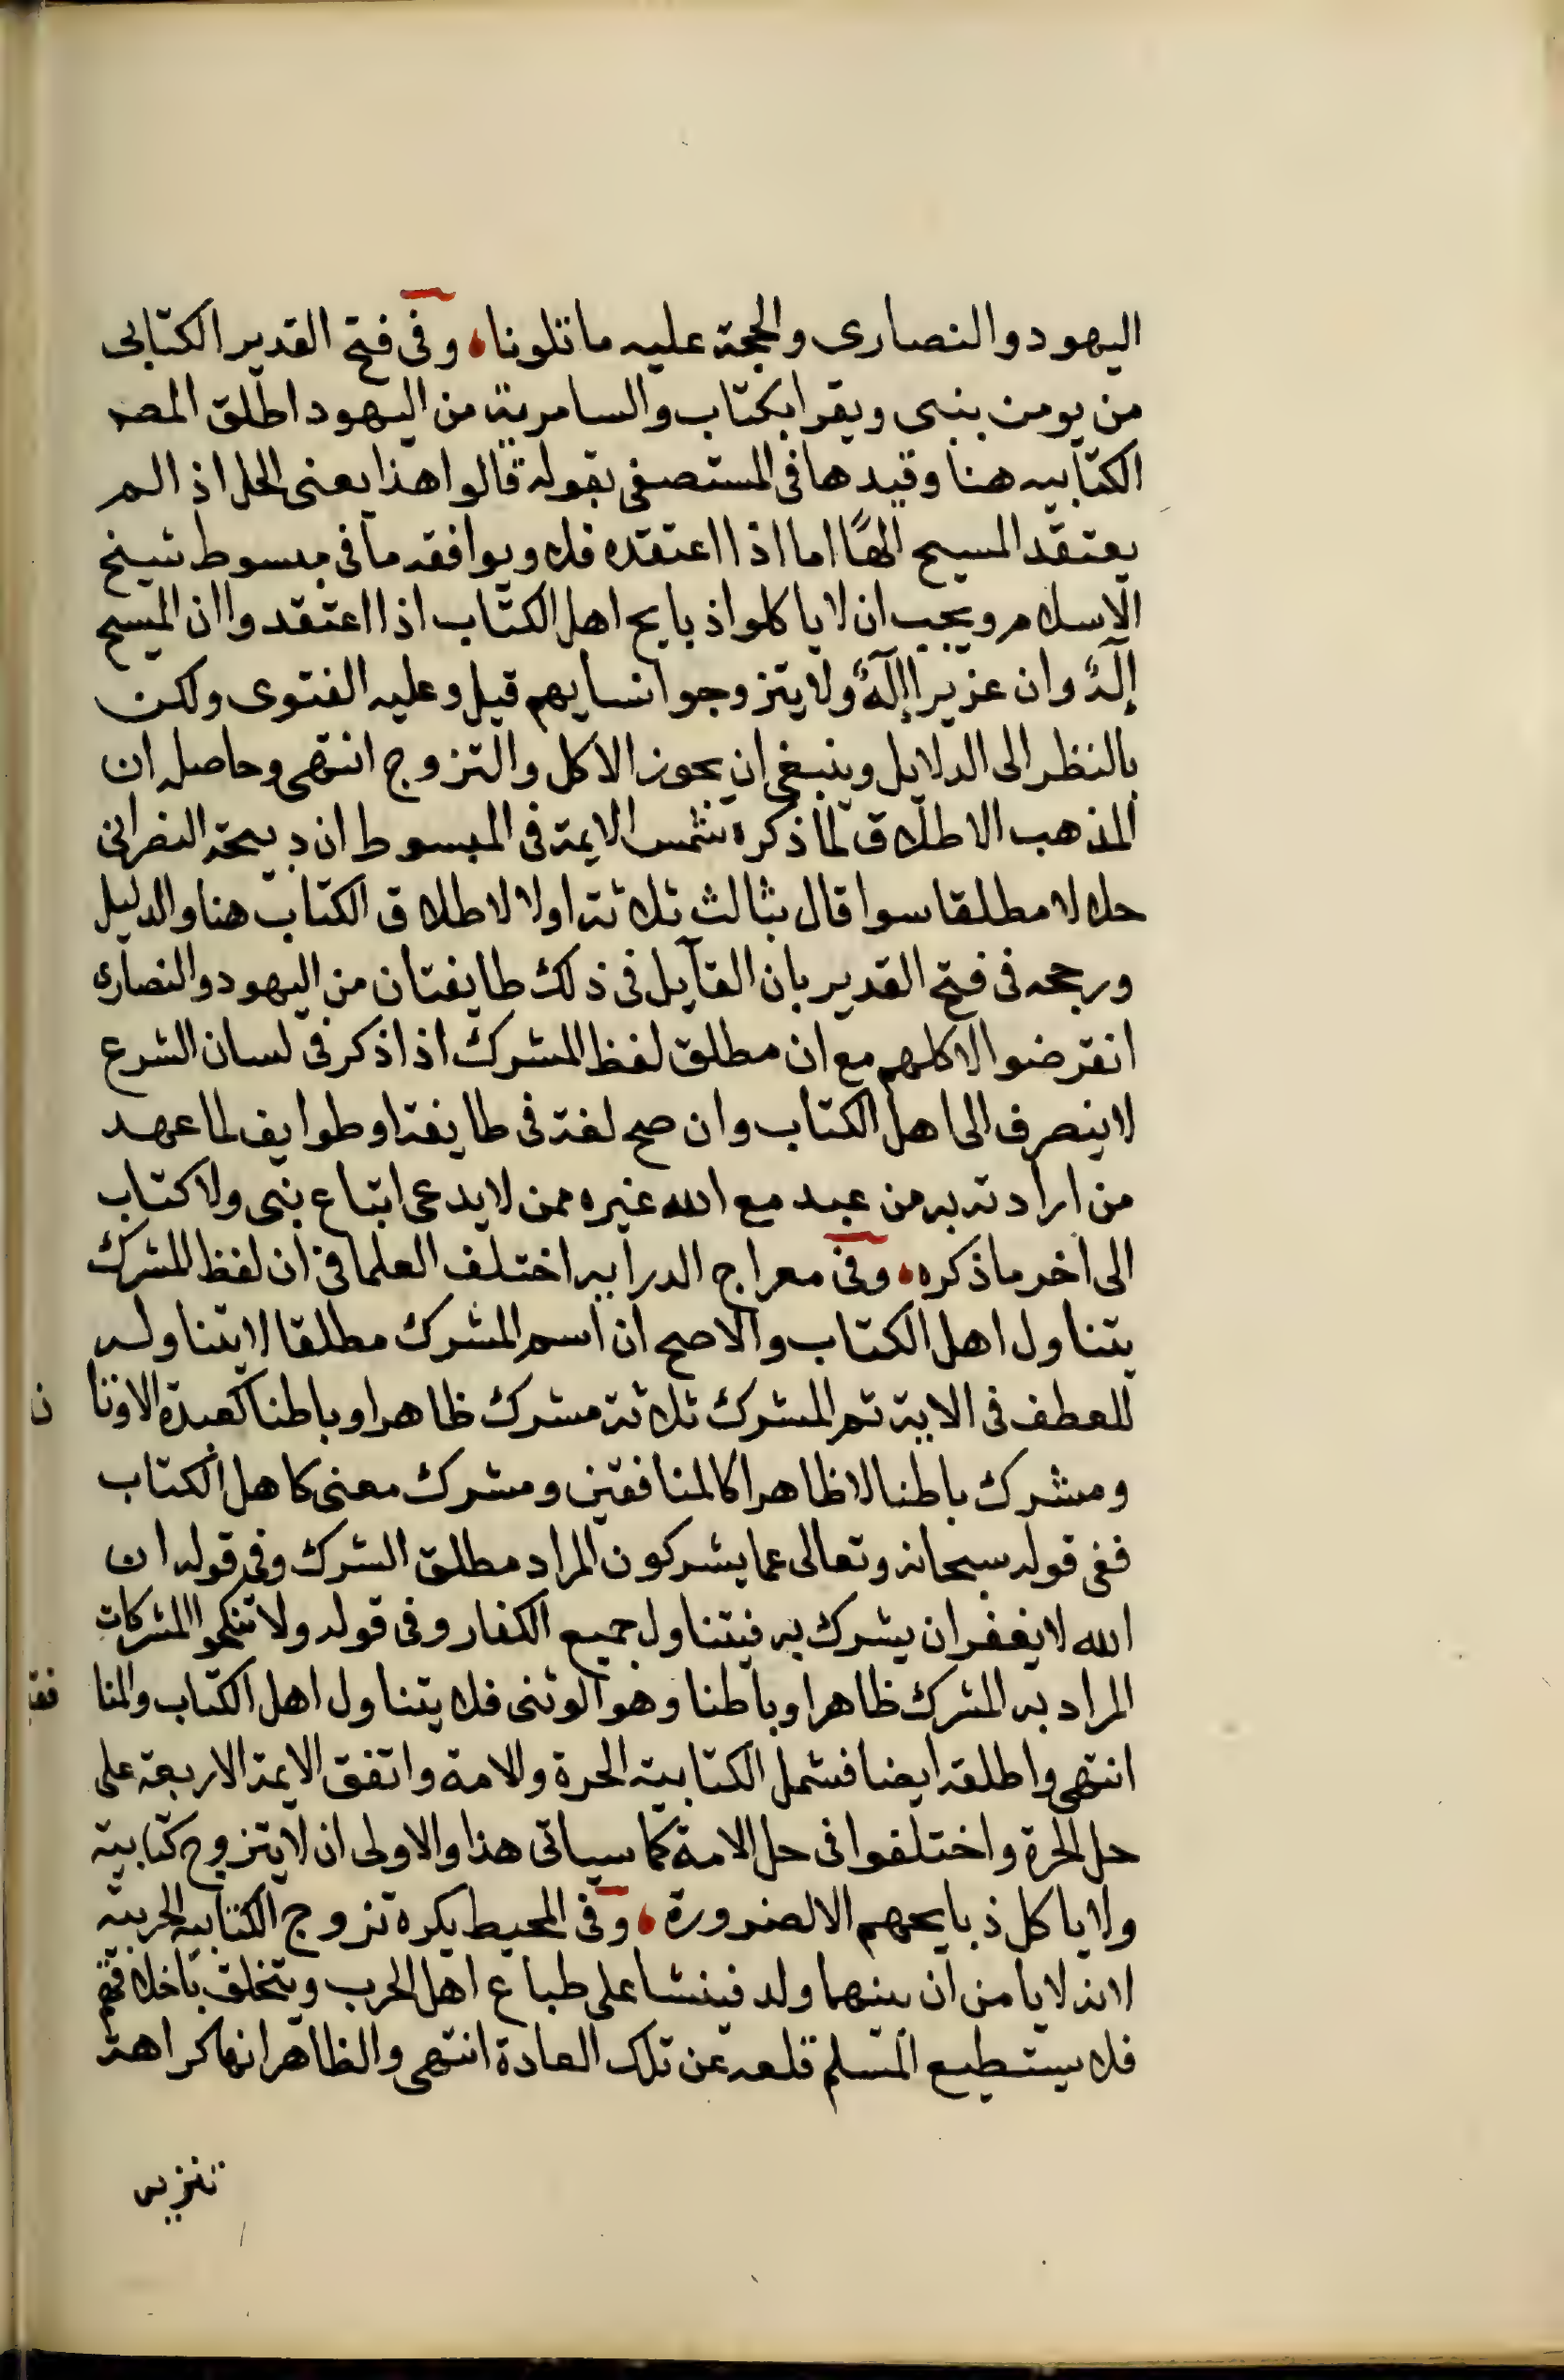 اليهود والنصارى والحجة عليه ما تلونا، وفى فتح القدير الكتابى
من يومن بنبى ويقر ابكتاب والسامرية من اليهود اطلق المصـ
الكتابيه هنا وقيدها فى المستصفى بقوله قالوا هذا يعنى الحل اذا لم
يعتقد المسيح الهًا اما اذا اعتقده فلا ويوافقه ما فى مبسوط شيخ
الاسلام ويجب ان لا ياكلوا ذبايح اهل الكتاب اذا اعتقدوا ان المسيح
إلهٌ وان عزيرا إلهٌ ولا يتزوجوا نسايهم قيل وعليه الفتوى ولكن
بالنظر الى الدلايل وينبغى ان يجوز الاكل والتزوج انتهى وحاصله ان
المذهب الاطلاق لما ذكره شمس الايمة فى المبسوط ان ذبيحة النصرانى
حلالا مطلقا سوا قال بثالث ثلاثة او لا لاطلاق الكتاب هنا والدليل
ورجحه فى فتح القدير بان القايل فى ذلك طايفتان من اليهود والنصارى
انقرضوا لا كلهم مع ان مطلق لفظ المشرك اذا ذكر فى لسان الشرع
لا ينصرف الى اهل الكتاب وان صح لغة فى طايفة او طوايف لما عهد
من ارادته به من عبد مع الله غيره ممن لا يدعى اتباع نبى ولا كتاب
الى اخر ما ذكره، وفى معراج الدرايه اختلف العلما فى ان لفظ المشرك
يتناول اهل الكتاب والاصح ان اسم المشرك مطلقا لا يتناوله
للعطف فى الاية ثم المشرك ثلاثة مشرك ظاهرا وباطنا كعبدة الاوثا ن
ومشرك باطنا لا ظاهرا كالمنافقين ومشرك معنى كاهل الكتاب
ففى قوله سبحانه وتعالى عما يشركون المراد مطلق الشرك وفى قوله ان
الله لا يغفر ان يشرك به فيتناول جميع الكفار وفى قوله ولا تنكحوا المشركات
المراد به المشرك ظاهرا وباطنا وهو الوثنى فلا يتناول اهل الكتاب والمنا فقـ
انتهى واطلقه ايضا فشمل الكتابية الحرة والامة واتفق الايمة الاربعة على
حل الحرة واختلفوا فى حل الامة كما سياتى هذا والاولى ان لا يتزوج كتابية
ولا ياكل ذبايحهم الا لضرورة، وفى المحيط يكره تزوج الكتابيه الحربية
لانه لا يامن ان بينهما ولد فينشا على طباع اهل الحرب ويتخلق باخلاقهم
فلا يستطيع المسلم قلعه عن تلك العادة انتهى والظاهر انها كراهة
تنزيه